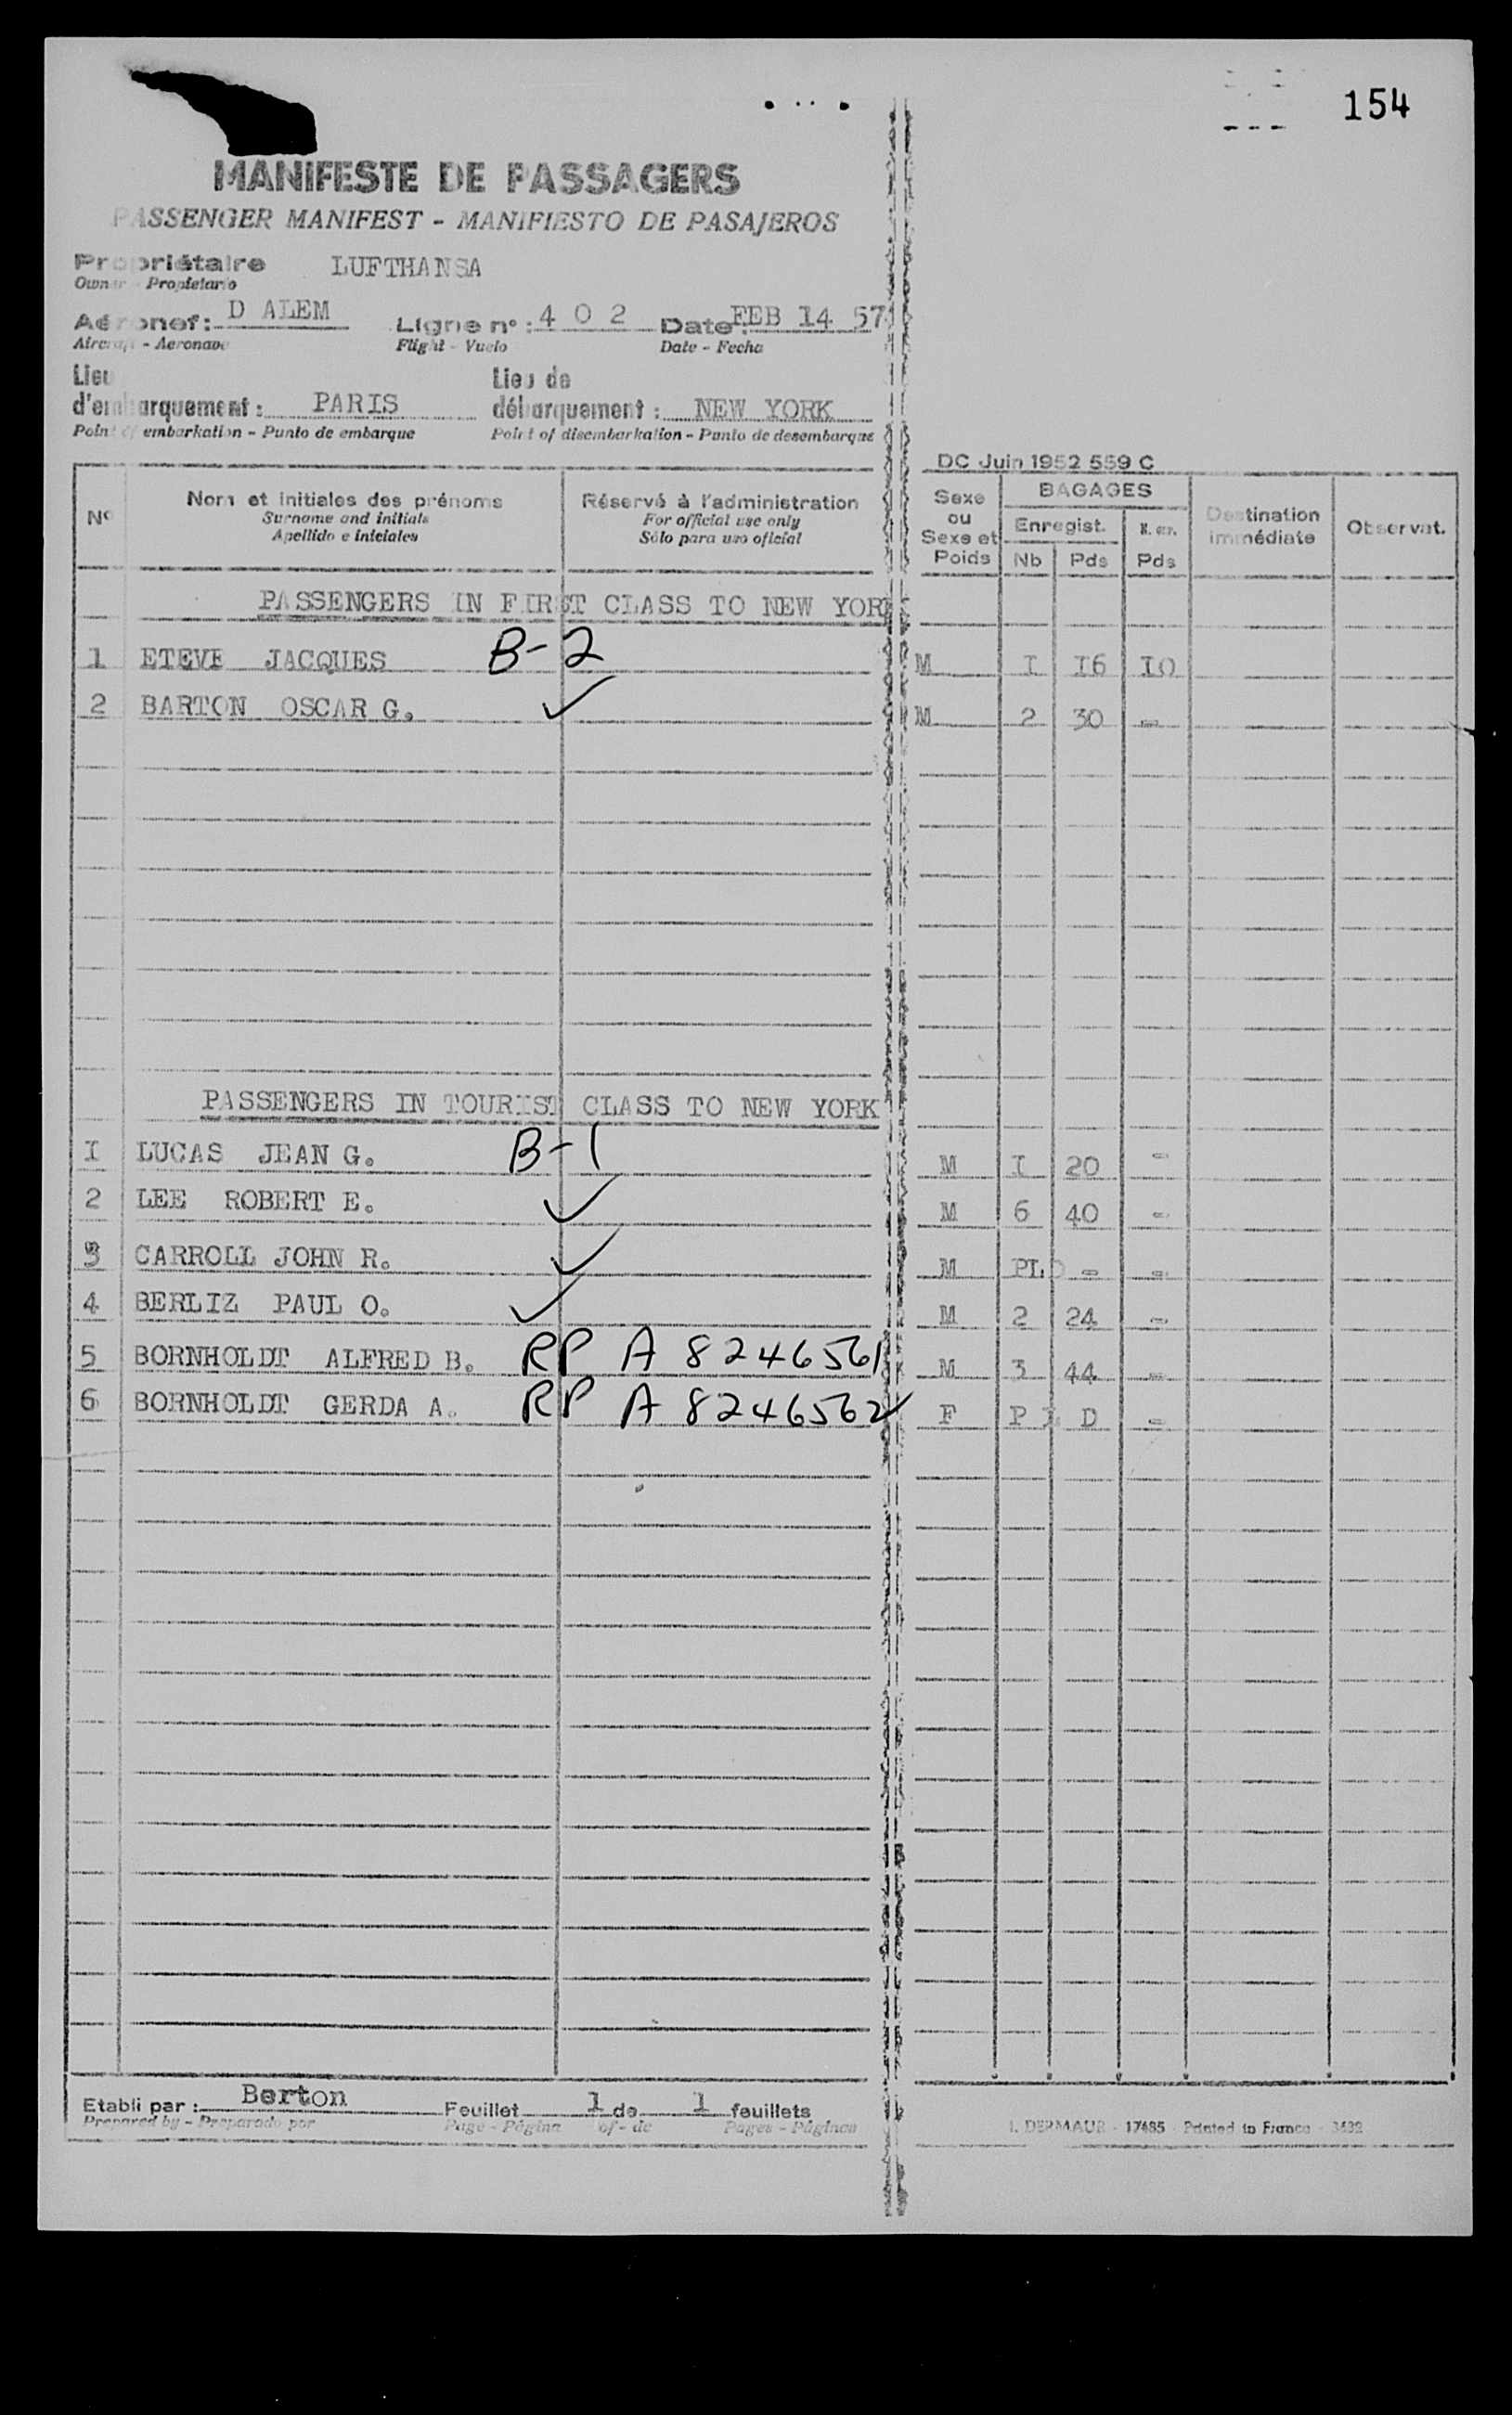 154
MANIFESTE DE PASSAGERS
PASSENGER MANIFEST - MANIFIESTO DE PASAJEROS
Propriétaire LUFTHANSA
Owner - Propietario
Aéronef: D ALEM Ligne n° : 4 0 2 Date : FEB 14 57
Aircraft - Aeronave Flight - Vuelo Date - Fecha
Lieu Lieu de
d'embarquement : PARIS débarquement : NEW YORK
Point of embarkation - Punto de embarque Point of disembarkation - Punto de desembarque
DC Juin 1952 559 C
N° Nom et initiales des prénoms Réservé à l'administration Sexe BAGAGES Destination Observat.
Surname and initials For official use only ou Enregist. immédiate
Apellido e iniciales Sólo para uso oficial Sexe et
Poids Nb Pds Pds
PASSENGERS IN FIRST CLASS TO NEW YORK
1 ETEVE JACQUES B-2 M I I6 IO
2 BARTON OSCAR G. ✓ M 2 30 -
PASSENGERS IN TOURIST CLASS TO NEW YORK
I LUCAS JEAN G. B-1 M I 20 -
2 LEE ROBERT E. ✓ M 6 40 -
3 CARROLL JOHN R. ✓ M PLD - -
4 BERLIZ PAUL O. ✓ M 2 24 -
5 BORNHOLDT ALFRED B. RP A 8246561 M 3 44 -
6 BORNHOLDT GERDA A. RP A 8246562 ✓ F P L D -
Etabli par : Berton Feuillet 1 de 1 feuillets
Prepared by - Preparado por Page - Página of - de Pages - Páginas
I. DERMAUR - 17485 - Printed in France - 3432